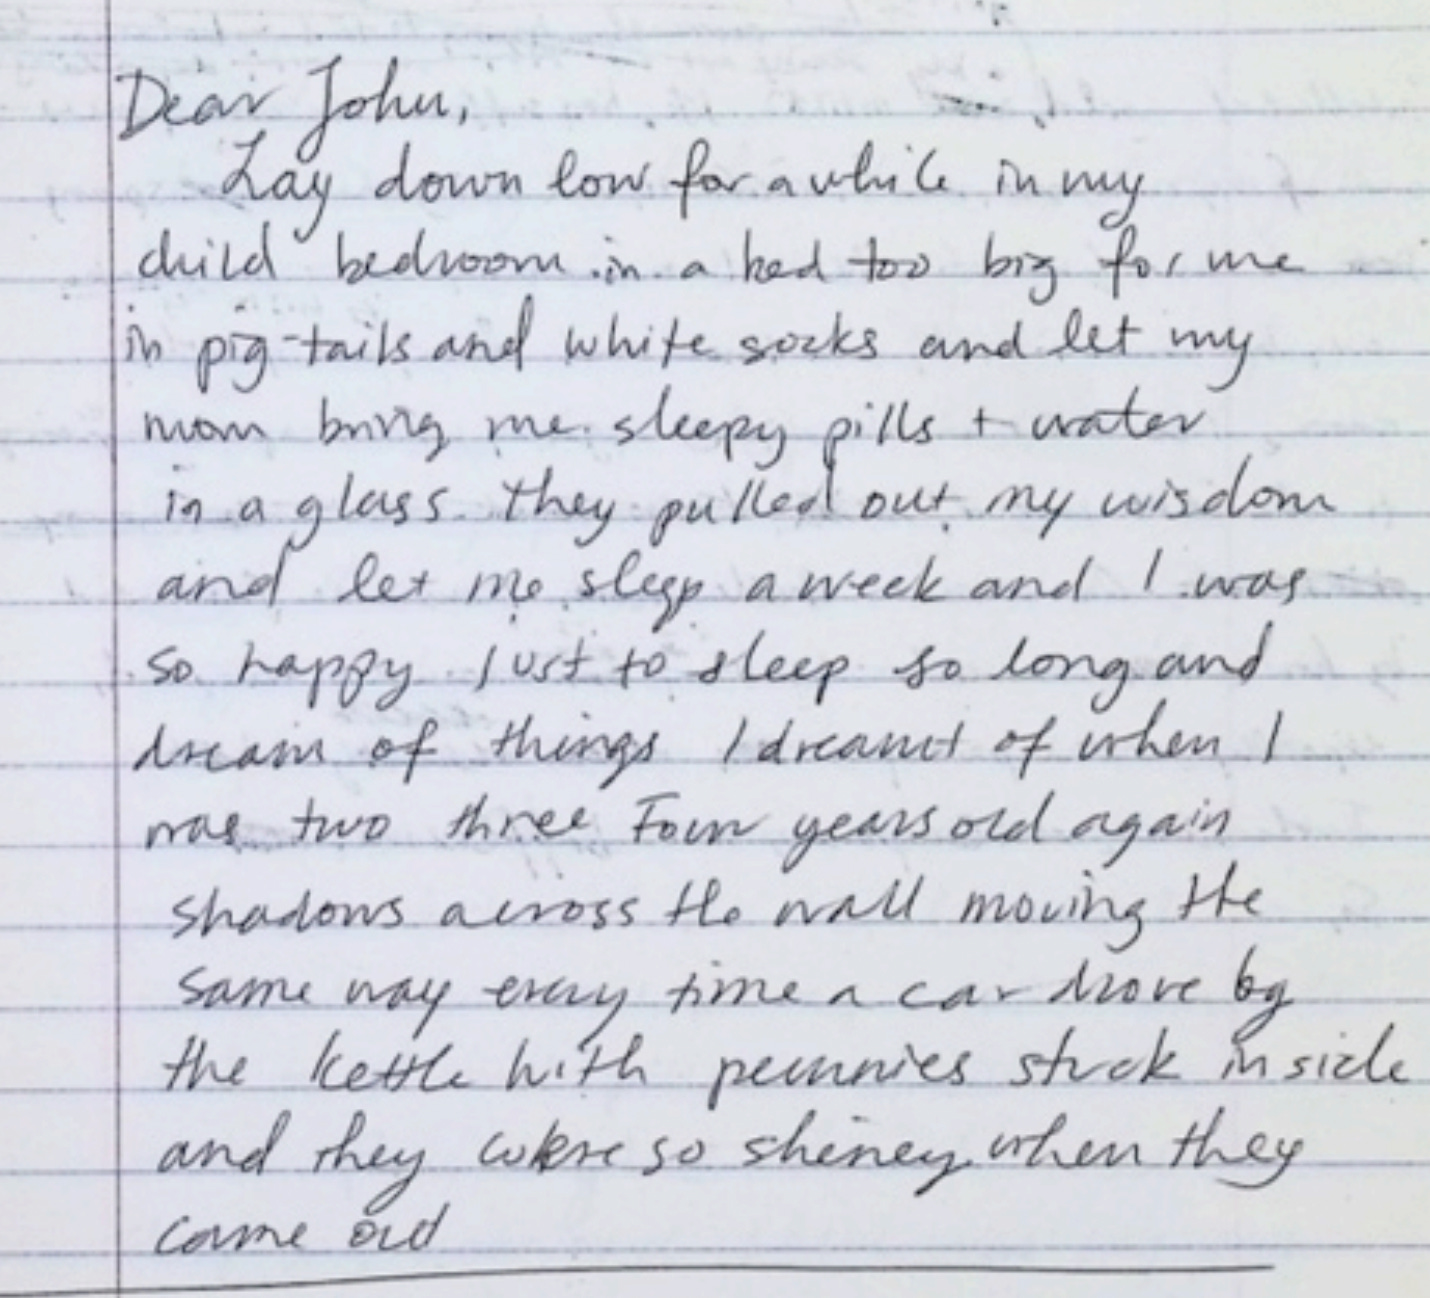 Dear John,
Lay down low for a while in my
child bedroom in a bed too big for me
in pig-tails and white socks and let my
mom bring me sleepy pills + water
in a glass. they pulled out my wisdom
and let me sleep a week and I was
so happy just to sleep so long and
dream of things I dreamt of when I
was two three Four years old again
shadows across the wall moving the
same way every time a car drove by
the kettle with pennnies stuck inside
and they were so shiney when they
came out